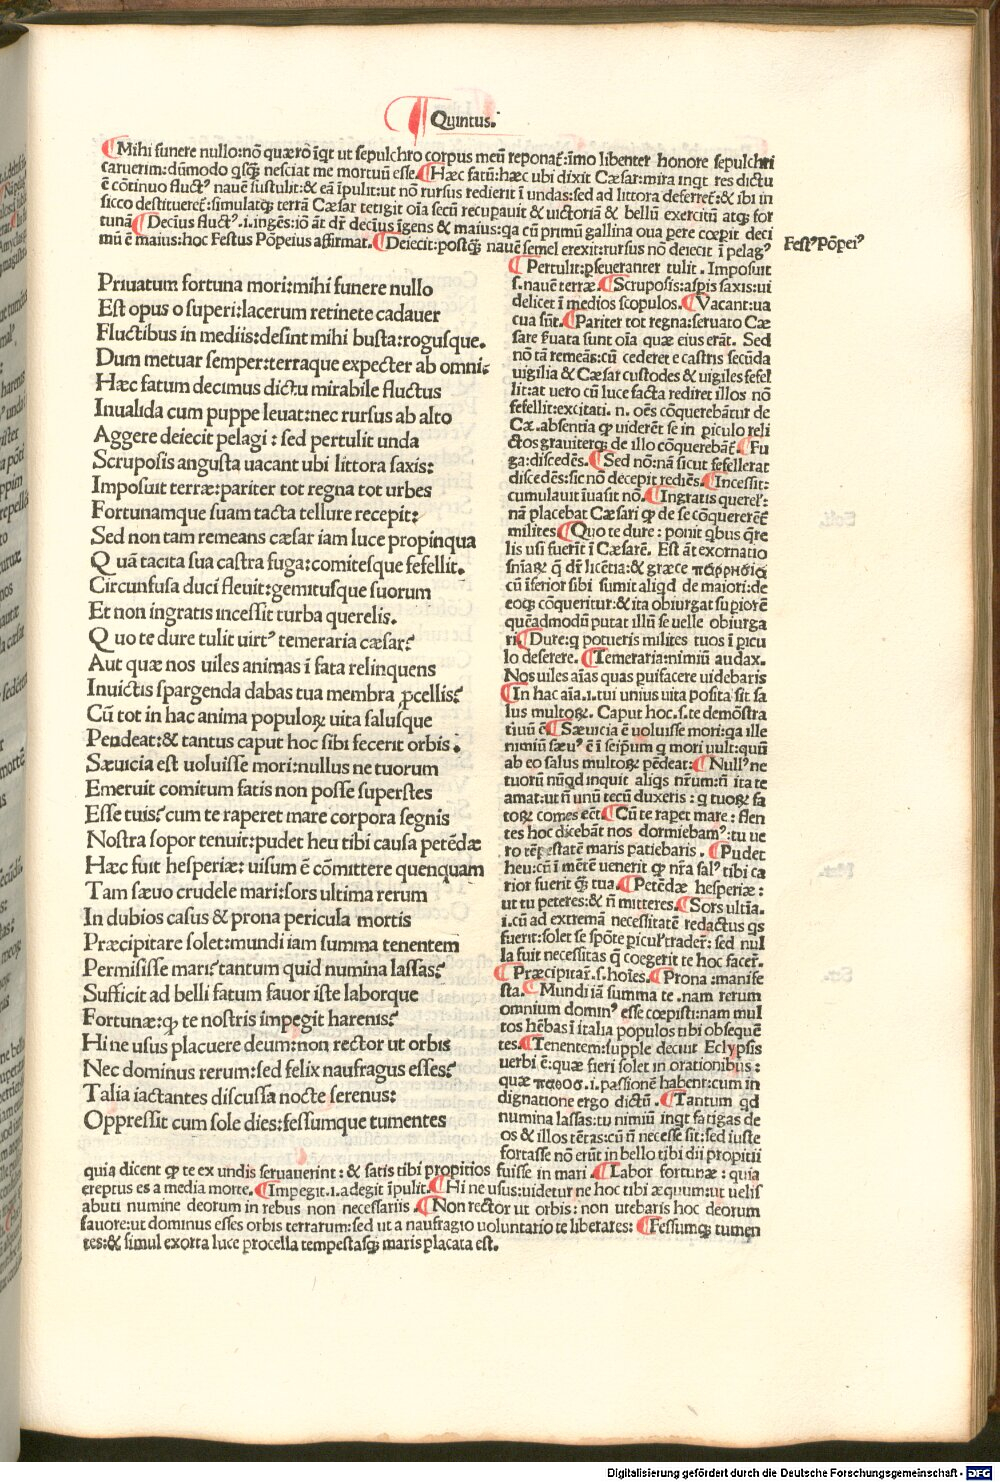 Quintus.
¶Mihi funere nullo:nõ quærõ īqt ut sepulchro corpus meū reponat̄:īmo libenter honore sepulchri
caruerim:dūmodo qsq̄ nesciat me mortuū esse.¶Hæc fatū:hæc ubi dixit Cæsar:mira inqt res dictu
ē cōtinuo fluctꝰ nauē sustulit:& eā īpulit:ut nō rursus redierit ī undas:sed ad littora deferret̄:& ibi in
sicco destitueret̄:simulatqȝ terrā Cæsar tetigit oīa secū recupauit & uictoriā & bellū exercitū atqȝ for
tunā¶Decius fluctꝰ.i.ingēs:iō āt dr̄ decius īgens & maius:qa cū primū gallina oua pere cœpit deci
mū ē maius:hoc Festus Pōpeius affirmat.¶Deiecit:postq̄ nauē semel erexit:rursus nō deiecit ī pelagꝰ
Festꝰ Pōpeiꝰ
Priuatum fortuna mori:mihi funere nullo
Est opus o superi:lacerum retinete cadauer
Fluctibus in mediis:desint mihi busta:rogusque.
Dum metuar semper:terraque expecter ab omni:
Hæc fatum decimus dictu mirabile fluctus
Inualida cum puppe leuat:nec rursus ab alto
Aggere deiecit pelagi : sed pertulit unda
Scruposis angusta uacant ubi littora saxis:
Imposuit terræ:pariter tot regna tot urbes
Fortunamque suam tacta tellure recepit:
Sed non tam remeans cæsar iam luce propinqua
Quā tacita sua castra fuga:comitesque fefellit.
Circunfusa duci fleuit:gemitusque suorum
Et non ingratis incessit turba querelis.
Quo te dure tulit uirtꝰ temeraria cæsar?
Aut quæ nos uiles animas ī fata relinquens
Inuictis spargenda dabas tua membra ꝓcellis?
Cū tot in hac anima populoꝝ uita salusque
Pendeat:& tantus caput hoc sibi fecerit orbis.
Sæuicia est uoluisse mori:nullus ne tuorum
Emeruit comitum fatis non posse superstes
Esse tuis?cum te raperet mare corpora segnis
Nostra sopor tenuit:pudet heu tibi causa petēdæ
Hæc fuit hesperiæ: uisum ē cōmittere quenquam
Tam sæuo crudele mari:sors ultima rerum
In dubios casus & prona pericula mortis
Præcipitare solet:mundi iam summa tenentem
Permisisse maris?tantum quid numina lassas?
Sufficit ad belli fatum fauor iste laborque
Fortunæ:ꝙ te nostris īmpegit harenis?
Hi ne usus placuere deum:non rector ut orbis
Nec dominus rerum:sed felix naufragus esses?
Talia iactantes discussa nocte serenus:
Oppressit cum sole dies:fessumque tumentes
¶Pertulit:ꝑseueranter tulit. Imposuit
s.nauē terræ.¶Scruposis:aspis saxis:ui
delicet ī medios scopulos.¶Vacant:ua
cua sūt.¶Pariter tot regna:seruato Cæ
sare ẜuata sunt oīa quæ eius erāt. Sed
nō tā remeās:cū cederet e castris secūda
uigilia & Cæsar custodes & uigiles fefel
lit:at uero cū luce facta rediret illos nō
fefellit:excitati. n. oēs cōquerebātur de
Cæ.absentia ꝙ uiderēt se in piculo reli
ctos grauiterqȝ de illo cōquerebāt̄.¶Fu
ga:discedēs.¶Sed nō:nā sicut fefellerat
discedēs:sic nō decepit rediēs.¶Incessit:
cumulauit īuasit nō.¶Ingratis querel̄:
nā placebat Cæsari ꝙ de se cōquererēt̄
milites.¶Quo te dure : ponit qbus q̄re
lis usi fuerīt ī Cæsarē. Est āt exornatio
sn̄iaꝝ q̄ dr̄ licētia:& græce παρρησία
cū īferior sibi sumit aliqd de maiori:de
eoqȝ cōqueritur:& ita obiurgat supiorē
quēadmodū putat illū se uelle obiurga
ri¶Dure:q potueris milites tuos ī picu
lo deserere. ¶Temeraria:nimiū audax.
Nos uiles aīas quas puifacere uidebaris
¶In hac aīa.i.tui unius uita posita sit sa
lus multoꝝ. Caput hoc.s.te demōstra
tiuū ē¶Sæuicia ē uoluisse mori:qa ille
nimiū sæuꝰ ē ī seipm̄ q mori uult:quū
ab eo salus multoꝝ pēdeat:¶Nullꝰ ne
tuorū nūqd inquit aliqs nr̄um:n̄ ita te
amat:ut n̄ unū tecū duxeris : q tuoꝝ fa
toꝝ comes eēt.¶Cū te rapet mare : flen
tes hoc dicebāt nos dormiebamꝰ:tu ue
ro tēpestatē maris patiebaris .¶Pudet
heu:cū ī mētē uenerit ꝙ nr̄a salꝰ tibi ca
rior fuerit q̄ tua.¶Petēdæ hesperiæ :
ut tu peteres:& n̄ mitteres.¶Sors ultīa.
i.cū ad extremā necessitatē redactus qs
fuerit:solet se spōte picul̄ trader̄: sed nul
la fuit necessitas q̄ coegerit te hoc facer̄.
¶Præcipitar̄.s.hoīes.¶Prona : manife
sta.¶Mundi iā summa te .nam rerum
omnium dominꝰ esse cœpisti:nam mul
tos hēbas ī italia populos tibi obsequē
tes.¶Tenentem:supple decuit Eclypsis
uerbi ē:quæ fieri solet in orationibus :
quæ παθος.i.passionē habent:cum in
dignatione ergo dictū .¶Tantum qd
numina lassas:tu nimiū inqt fatigas de
os & illos tētas:cū n̄ necesse sit:sed iuste
fortasse nō erūt in bello tibi dii propitii
quia dicent ꝙ te ex undis seruauerint : & satis tibi propitios fuisse in mari .¶Labor fortunæ : quia
ereptus es a media morte.¶Impegit.i.adegit īpulit.¶Hi ne usus:uidetur ne hoc tibi æquum:ut uelis
abuti numine deorum in rebus non necessariis .¶Non rector ut orbis : non utebaris hoc deorum
fauore:ut dominus esses orbis terrarum:sed ut a naufragio uoluntario te liberares:¶Fessumqȝ tumen
tes:& simul exorta luce procella tempestasqȝ maris placata est.
Digitalisierung gefördert durch die Deutsche Forschungsgemeinschaft - DFG